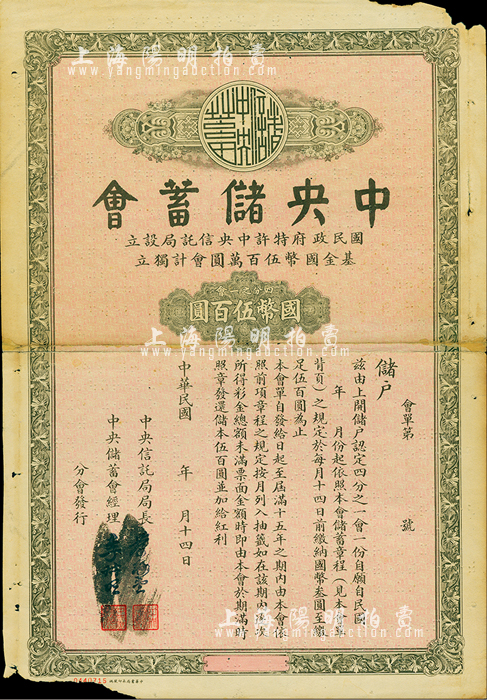 上海陽明拍賣
www.yangmingauction.com
中央儲蓄會
國民政府特許中央信託局設立
基金國幣伍百萬圓會計獨立
四分之一會
國幣伍百圓
上海陽明拍賣
www.yangmingauction.com
會單第 號
儲戶
茲由上開儲戶認定四分之一會一份自願自民國
年 月份起依照本會儲蓄章程(見本會單
背頁)之規定於每月十四日前繳納國幣叁圓至繳
足伍百圓為止
本會單自發給日起至屆滿十五年之期內由本會依
照前項章程之規定按月列入抽籤如在該期內
所得彩金總額未滿票面金額時即由本會於期滿時
照章發還儲本伍百圓並加給紅利
中華民國 年 月十四日
中央信託局局長
中央儲蓄會經理
分會發行
上海陽明拍賣
www.yangmingauction.com
0440715